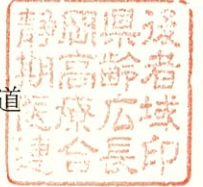 静岡県後
期高齢者
医療広域
連合長印
道